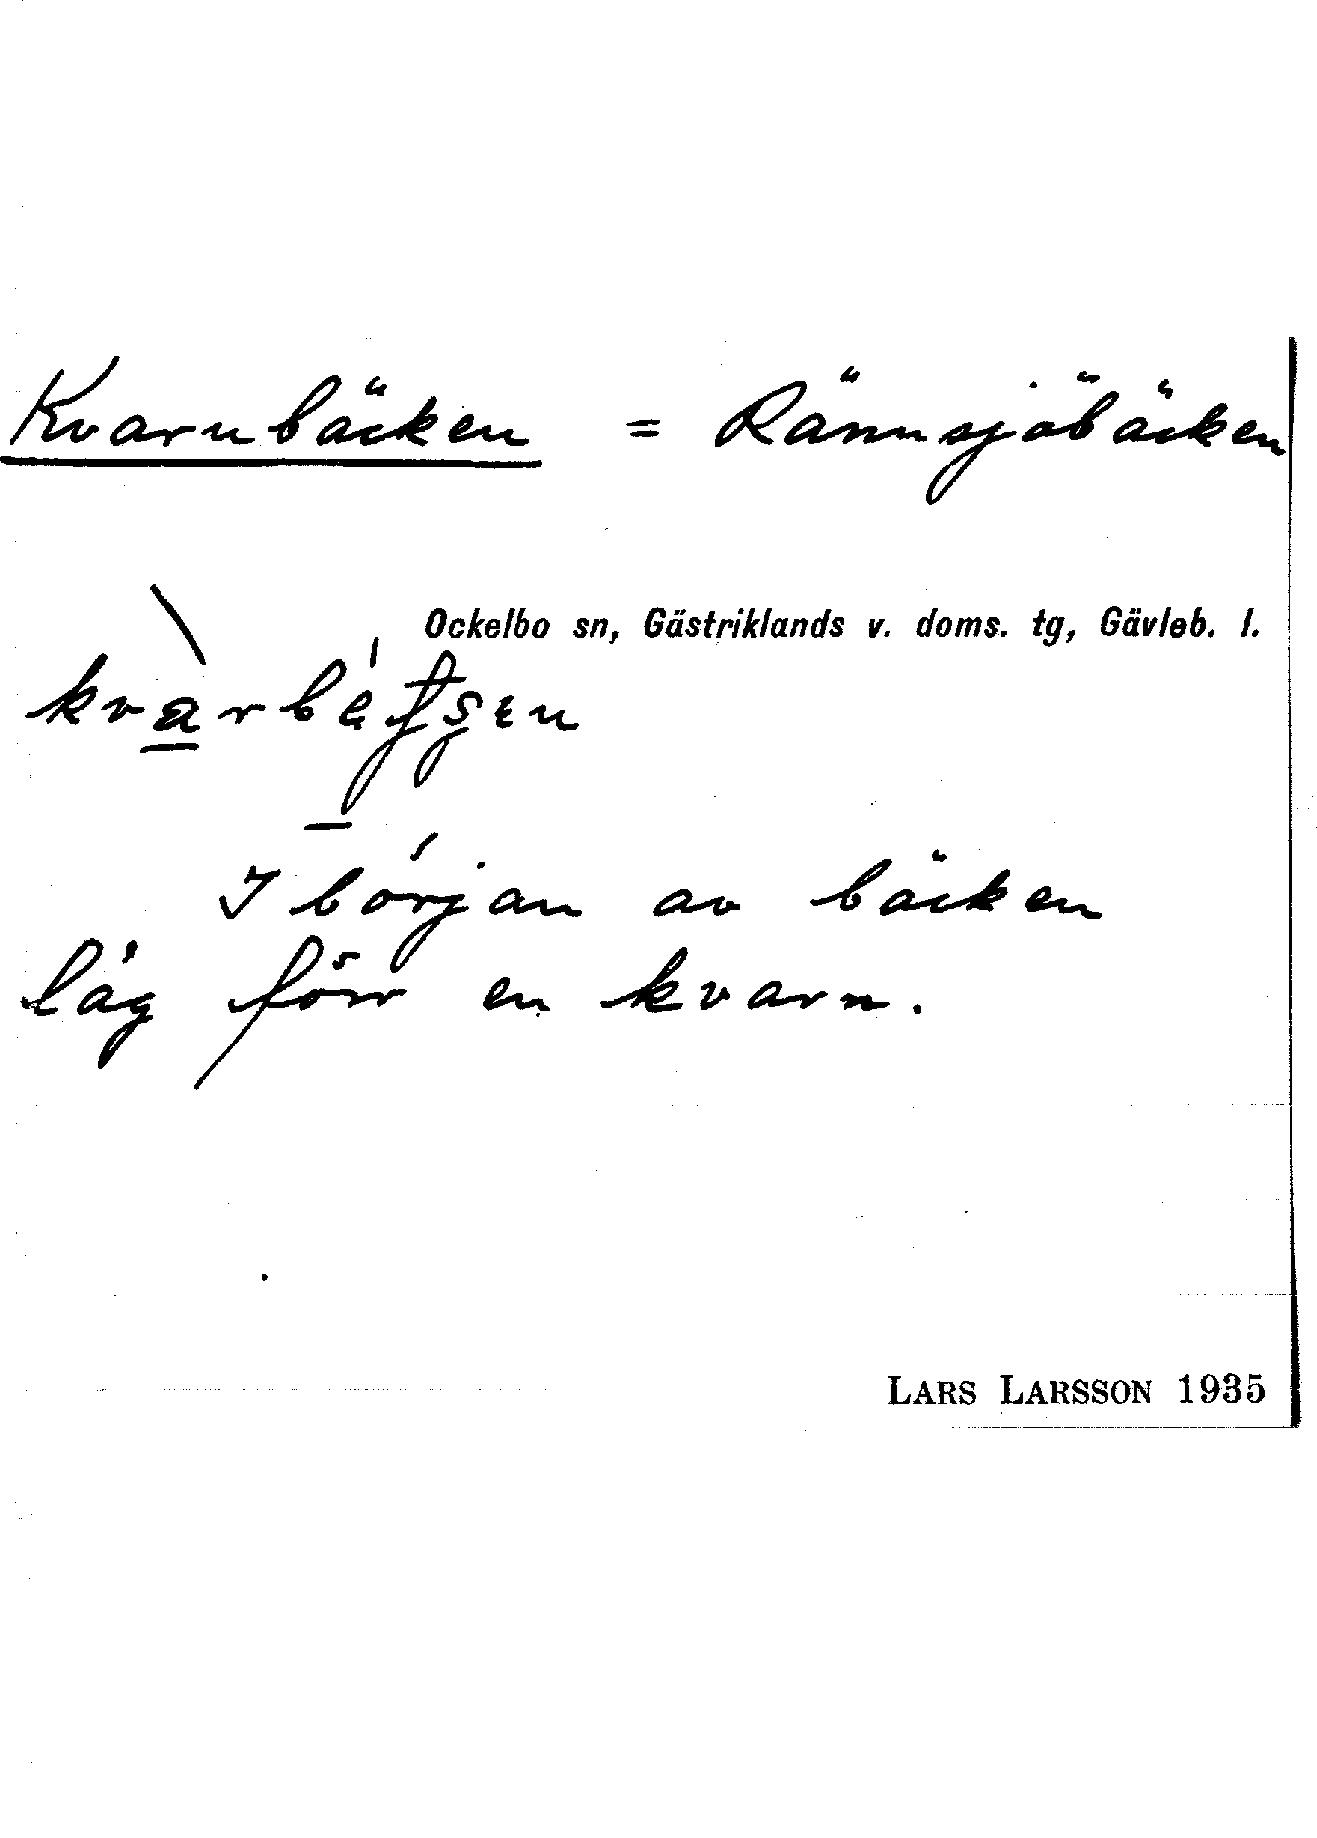 Kvarnbäcken = Rännsjöbäcken
Ockelbo sn, Gästriklands v. doms. tg, Gävleb. l.
I början av bäcken
låg förr en kvarn.
LARS LARSSON 1935